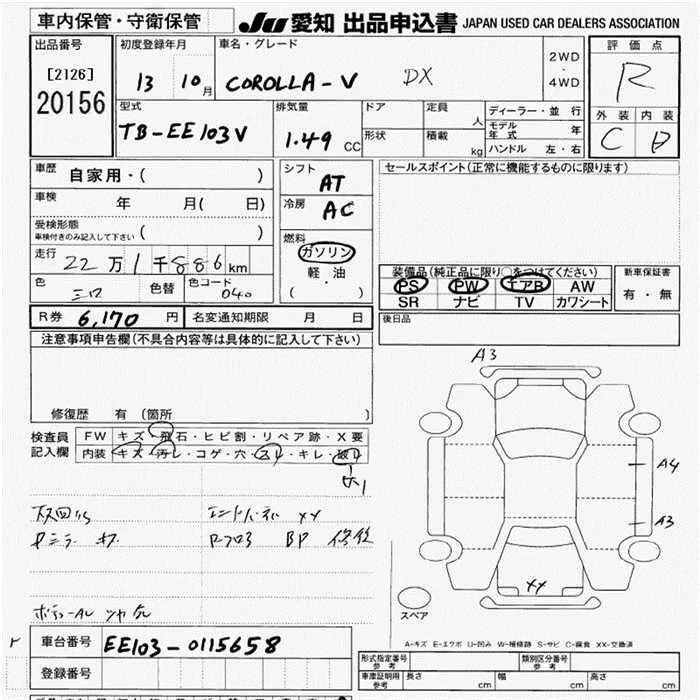 車内保管・守衛保管
JU 愛知 出品申込書 JAPAN USED CAR DEALERS ASSOCIATION
出品番号
[2126]
20156
初度登録年月
13 10月
車名・グレード
COROLLA-V DX
2WD
・
4WD
評価点
R
外装 内装
C D
型式
TB-EE103V
排気量
1.49 CC
ドア
形状
定員 人
積載 kg
ディーラー・並行
モデル年式 年
ハンドル 左・右
車歴 自家用・( )
車検 年 月( 日)
受検形態
車検付きのみ記入して下さい ( )
走行 22万1千886km
色 シロ 色替 色コード 040
シフト
AT
冷房
AC
燃料
ガソリン
軽・油
( ・ )
セールスポイント(正常に機能するものに限ります)
装備品(純正品に限り○をつけてください)
PS PW エアB AW
SR ナビ TV カワシート
新車保証書
有・無
後日品
R券 6,170 円 名変通知期限 月 日
注意事項申告欄(不具合内容等は具体的に記入して下さい)
修復歴 有 (箇所 )
検査員
記入欄
FW キズ・飛石・ヒビ割・リペア跡・X要
内装 キズ・汚レ・コゲ・穴・スレ・キレ・破レ
A3
A4
A3
XX
スペア
XX
BP
A-キズ E-エクボ U-凹み W-補修跡 S-サビ C-腐食 XX-交換済
車台番号 EE103-0115658
登録番号
形式指定番号
参考
類別区分番号
参考
車庫証明用
参考
長さ cm 幅 cm 高さ cm